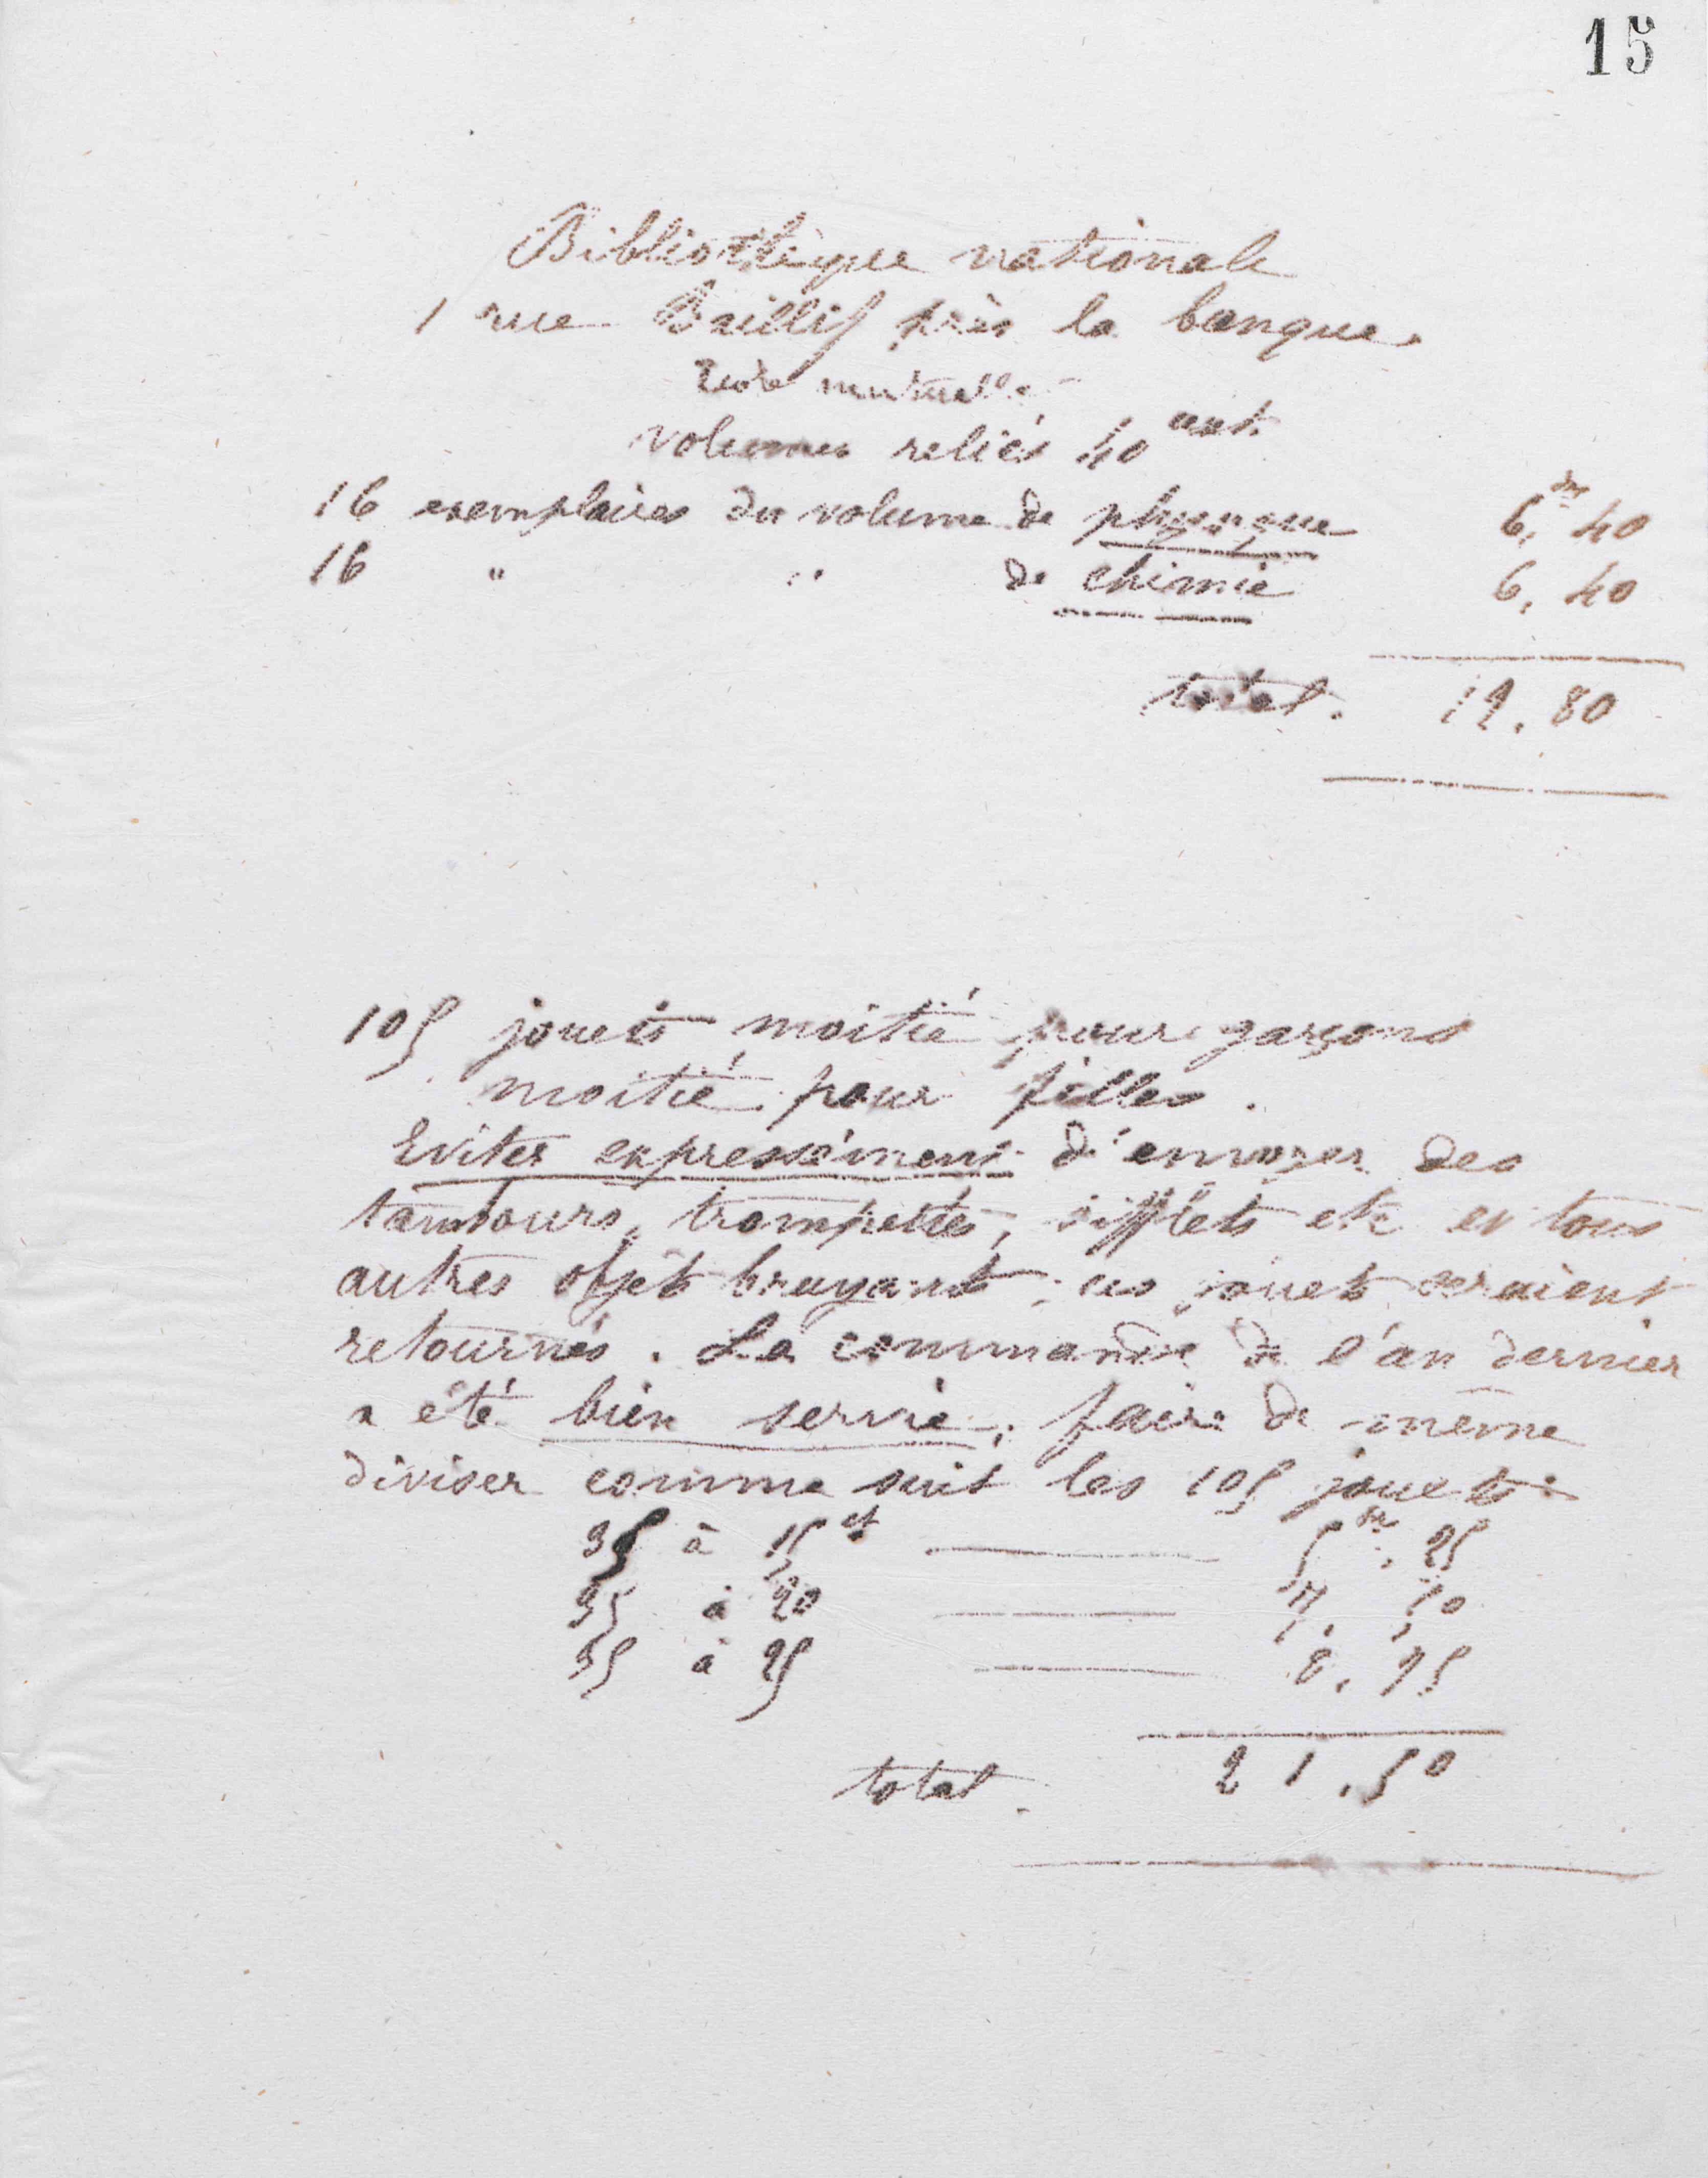 15
Bibliothèque nationale
1 rue Baillif près la banque.
Ecole mutuelle
volumes reliés 40 cent.
16 exemplaires du volume de physique 6, 40
16 " " de chimie 6, 40
total. 12. 80
105 jouets moitié pour garçons
moitié pour filles.
Eviter expressément d'envoyer des
tambours, trompettes, sifflets etc et tous
autres objets bruyants; ces jouets seraient
retournés. La commande de l'an dernier
a été bien servie; faire de même
diviser comme suit les 105 jouets:
35 à 15 ct — 5 fr, 25
35 à 20 — 7, 50
35 à 25 — 8, 75
total. 21.50